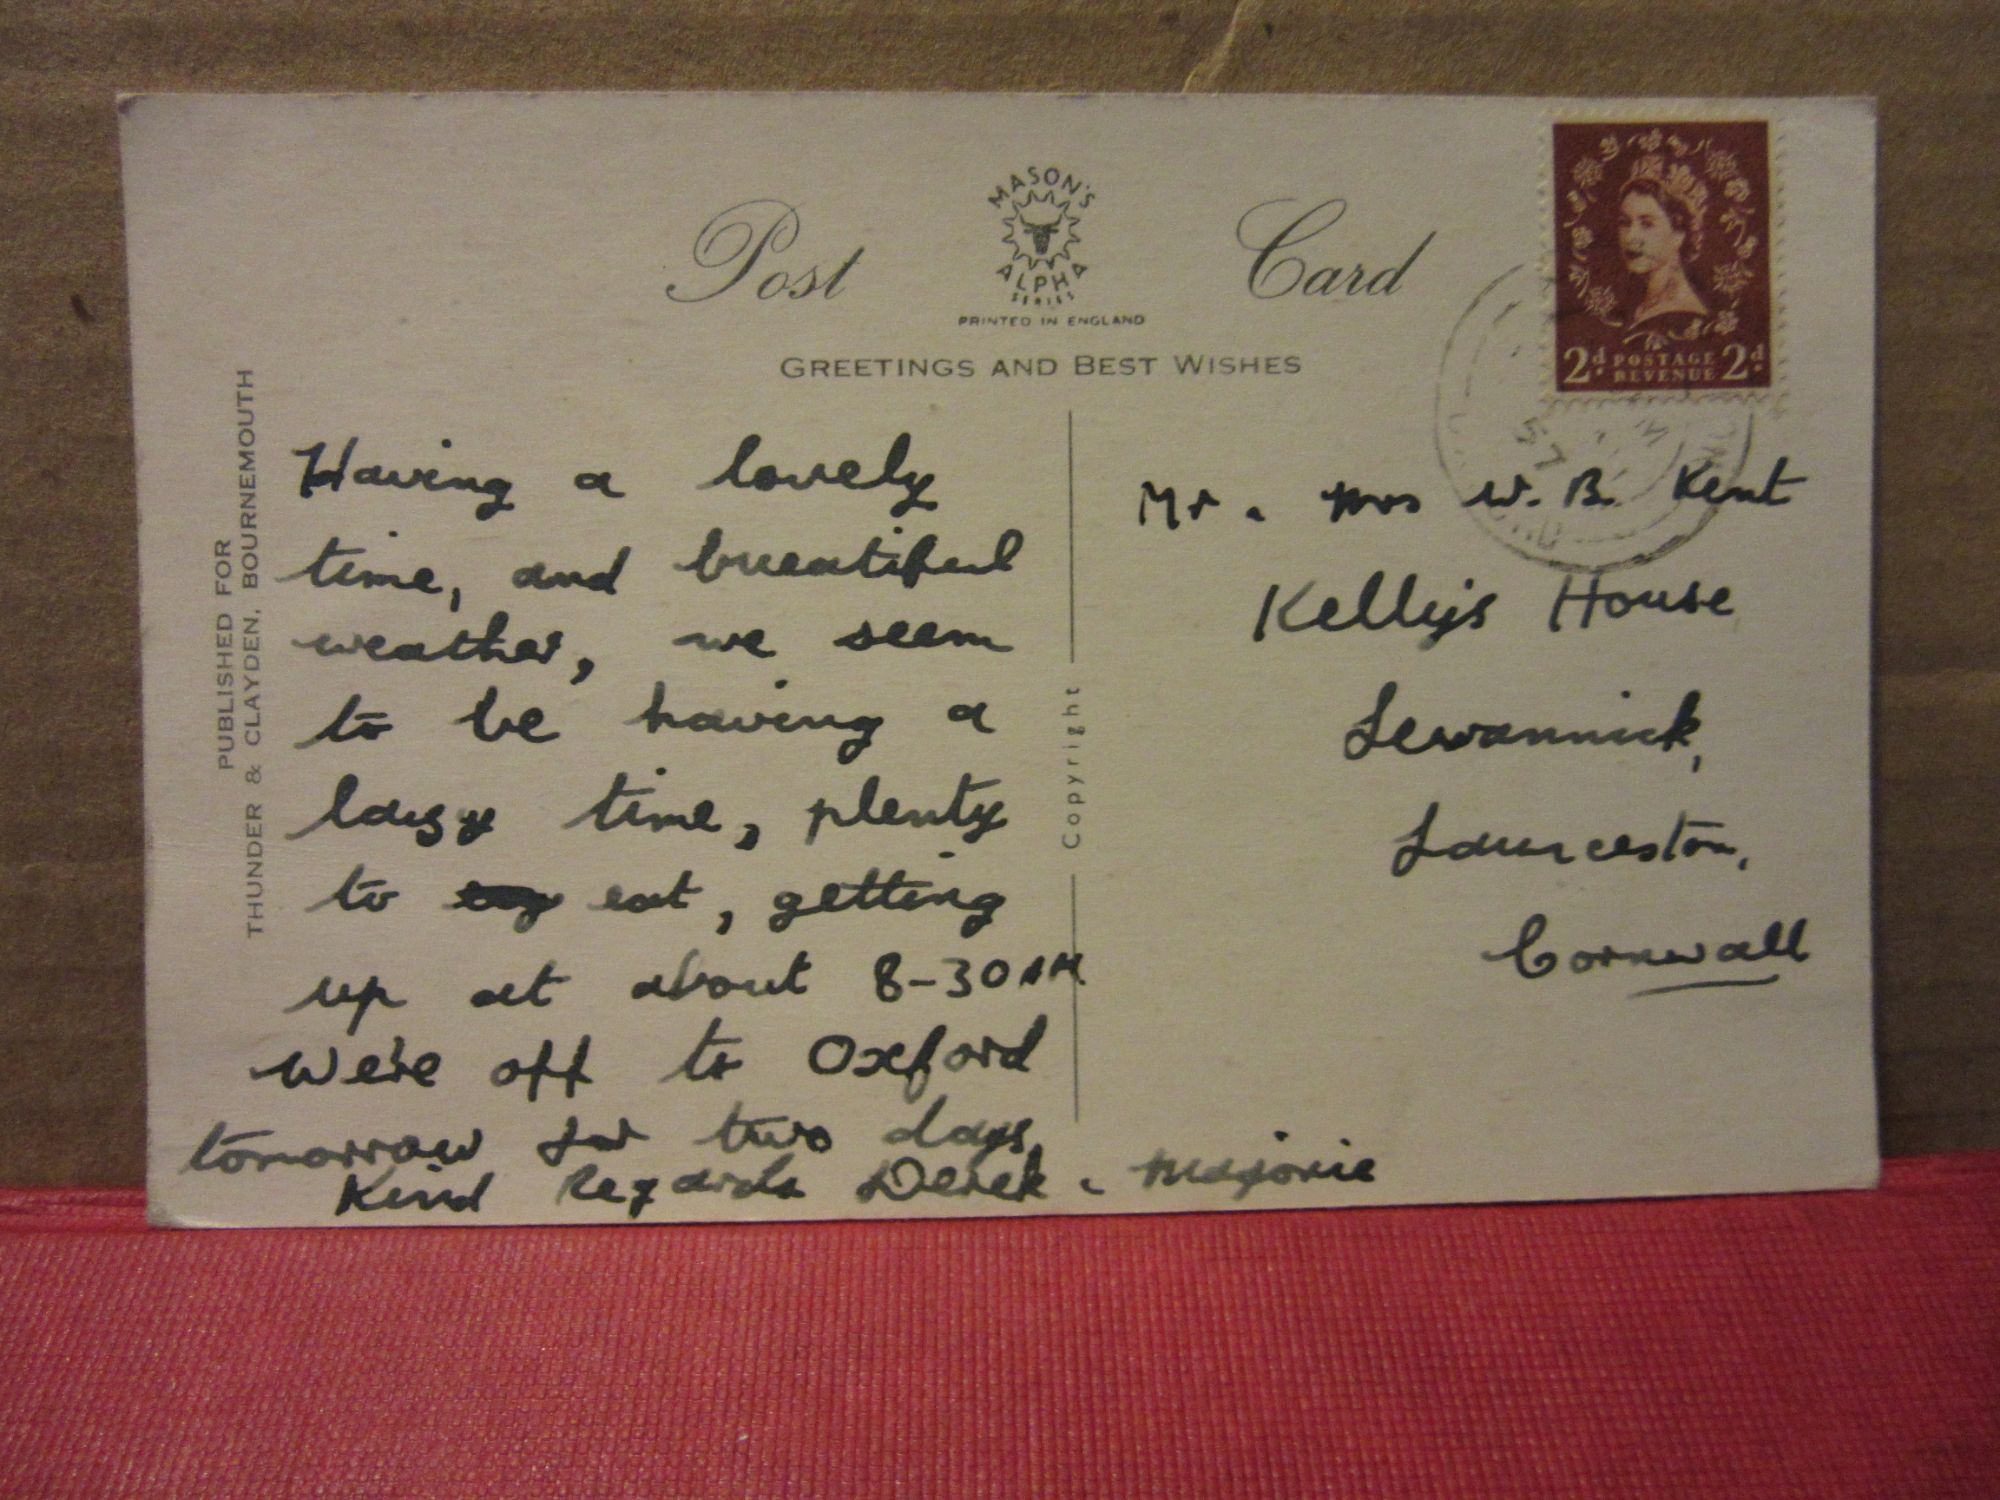 Post Card
MASON'S
ALPHA
SERIES
PRINTED IN ENGLAND
GREETINGS AND BEST WISHES
2d POSTAGE 2d
REVENUE
57
PUBLISHED FOR
THUNDER & CLAYDEN, BOURNEMOUTH
Copyright
Having a lovely
time, and breatiful
weather, we seem
to be having a
laysy time, plenty
to eat, getting
up at about 8-30AM
We're off to Oxford
tomorrow for two days,
Kind Regards Derek & Marjorie
Mr & Mrs W. B. Kent
Kellys House
Lewannick,
Launceston,
Cornwall